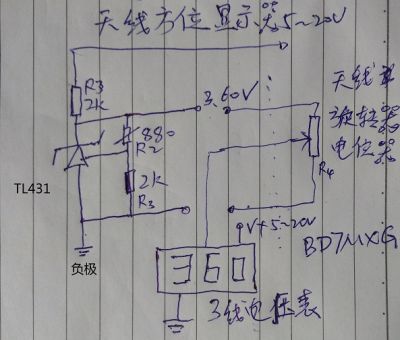 天线方位显示器5~20V
R3
2K
3.60V
天线
旋转器
电位器
880
R2
TL431
2K
R3
R4
V+5~20V
BD7MXG
360
负极
3线电压表